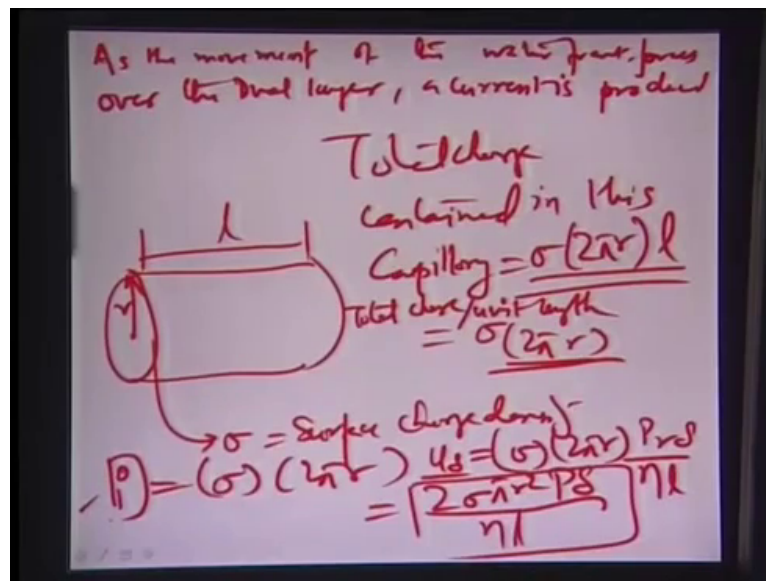 As the movement of the water front forces
over the Dual layer, a current is produced
Total charge
contained in this
Capillary = σ(2πr)l
l
r
Total charge/unit length
= σ(2πr)
σ = Surface charge density
i = (σ)(2πr) uδ = (σ)(2πr) Prδ/ηl
= 2σπr²Pδ/ηl